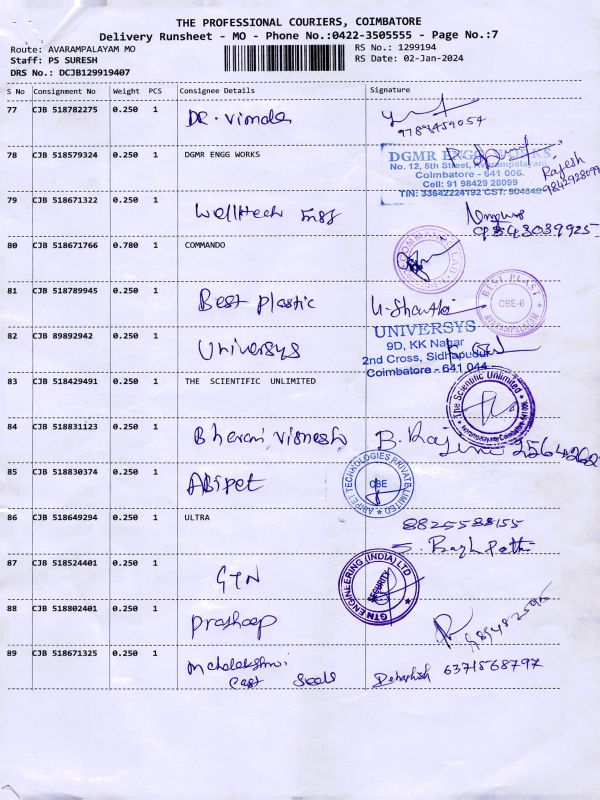 THE PROFESSIONAL COURIERS, COIMBATORE
Delivery Runsheet - MO - Phone No.:0422-3505555 - Page No.:7
Route: AVARAMPALAYAM MO
RS No.: 1299194
Staff: PS SURESH
RS Date: 02-Jan-2024
DRS No.: DCJB129919407
S No Consignment No Weight PCS Consignee Details Signature
77 CJB 518782275 0.250 1 DR. Vimala
9789459054
78 CJB 518579324 0.250 1 DGMR ENGG WORKS
DGMR ENGG WORKS
No. 12, 5th Street, Avarampalayam,
Coimbatore - 641 006.
Cell: 91 98429 28099
TIN: 33642224192 CST:
Rajesh
9842928099
79 CJB 518671322 0.250 1 Welltech Engg
80 CJB 518671766 0.780 1 COMMANDO
81 CJB 518789945 0.250 1 Best plastic
U. Shanthi
BEST PLAST
CBE-6
AVARAMPALAYAM
82 CJB 89892942 0.250 1 Universys
UNIVERSYS
9D, KK Nagar
2nd Cross, Sidhapudur
Coimbatore - 641 044
83 CJB 518429491 0.250 1 THE SCIENTIFIC UNLIMITED
The Scientific Unlimited
84 CJB 518831123 0.250 1 Bharani Vignesh
B. Rajeni
85 CJB 518830374 0.250 1 ABipet
ABIPET TECHNOLOGIES PRIVATE LIMITED
CBE
86 CJB 518649294 0.250 1 ULTRA
8825588155
87 CJB 518524401 0.250 1 GTN
GTN ENGINEERING (INDIA) LTD
SECURITY
88 CJB 518802401 0.250 1 Pradheep
89 CJB 518671325 0.250 1 Mahalakshmi
Cast Seals
Debashish 6371568797